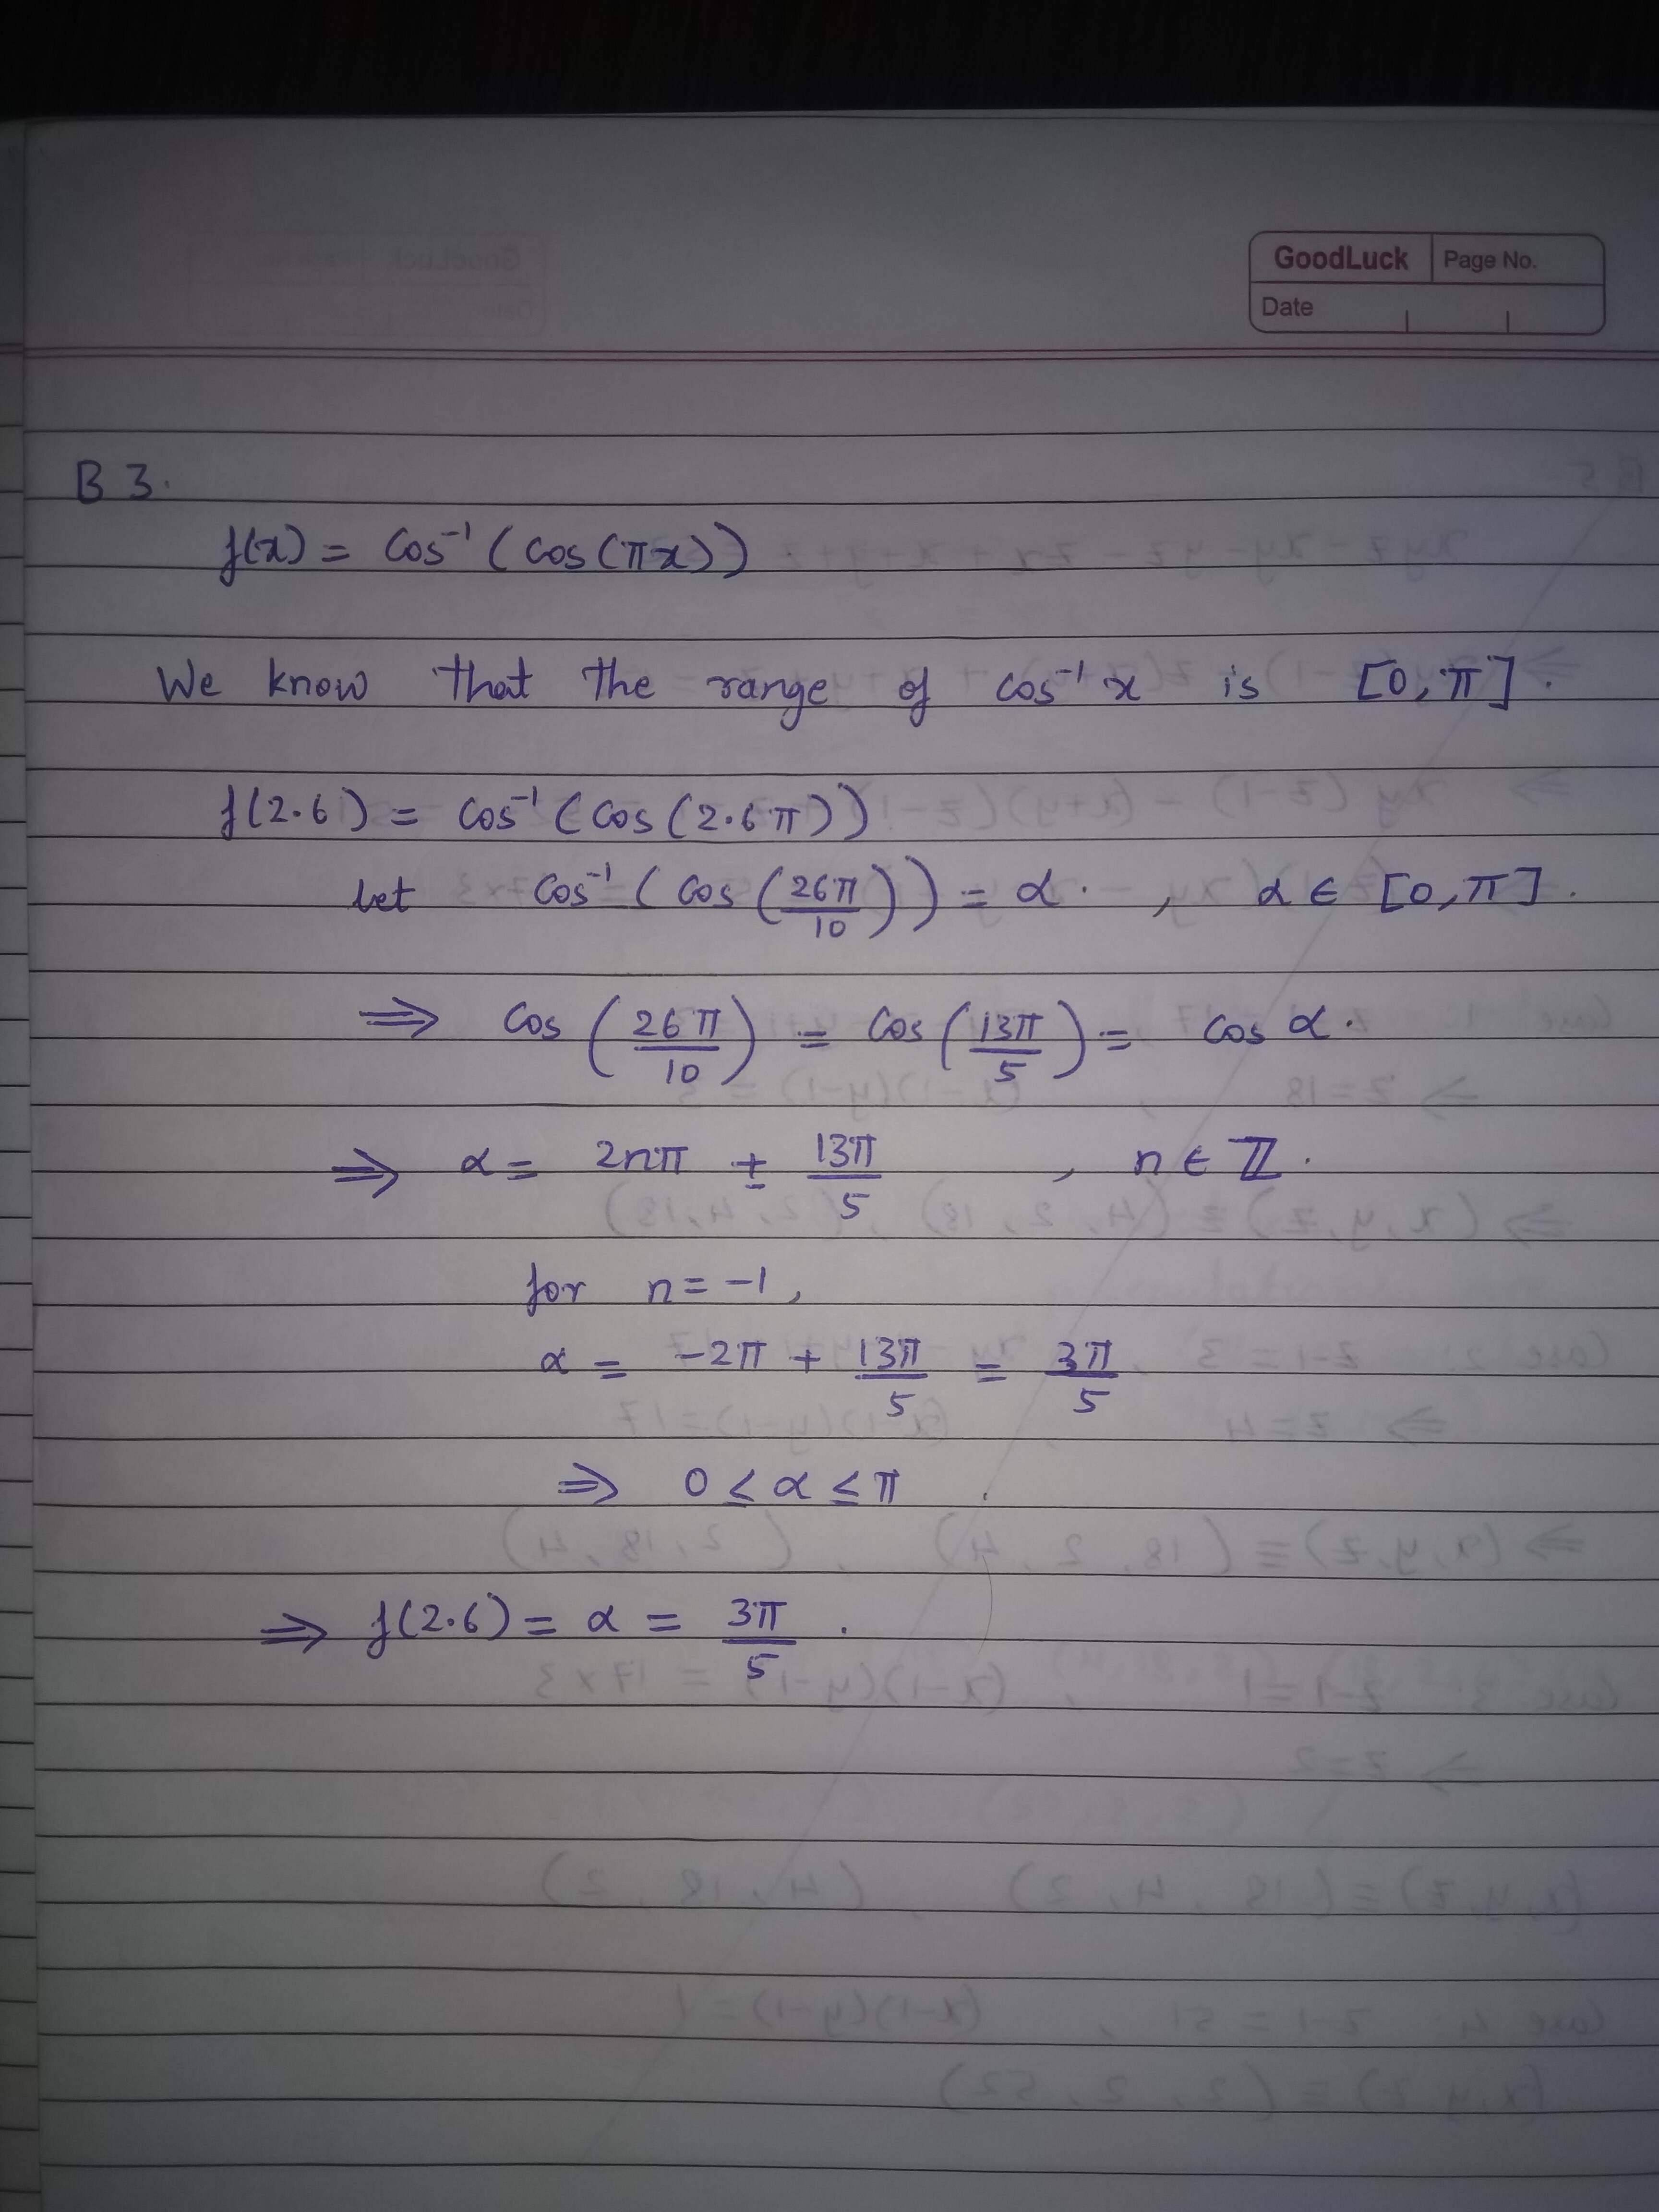 GoodLuck Page No.
Date
B 3.
f(x) = Cos⁻¹ (Cos(πx))
We know that the range of cos⁻¹ x is [0, π].
f(2.6) = Cos⁻¹ (Cos(2.6π))
let Cos⁻¹ (Cos (26π/10)) = α. , α ∈ [0, π].
⇒ Cos (26π/10) = Cos (13π/5) = Cos α.
⇒ α = 2nπ ± 13π/5 , n ∈ ℤ.
for n = -1,
α = -2π + 13π/5 = 3π/5
⇒ 0 ≤ α ≤ π
⇒ f(2.6) = α = 3π/5 .